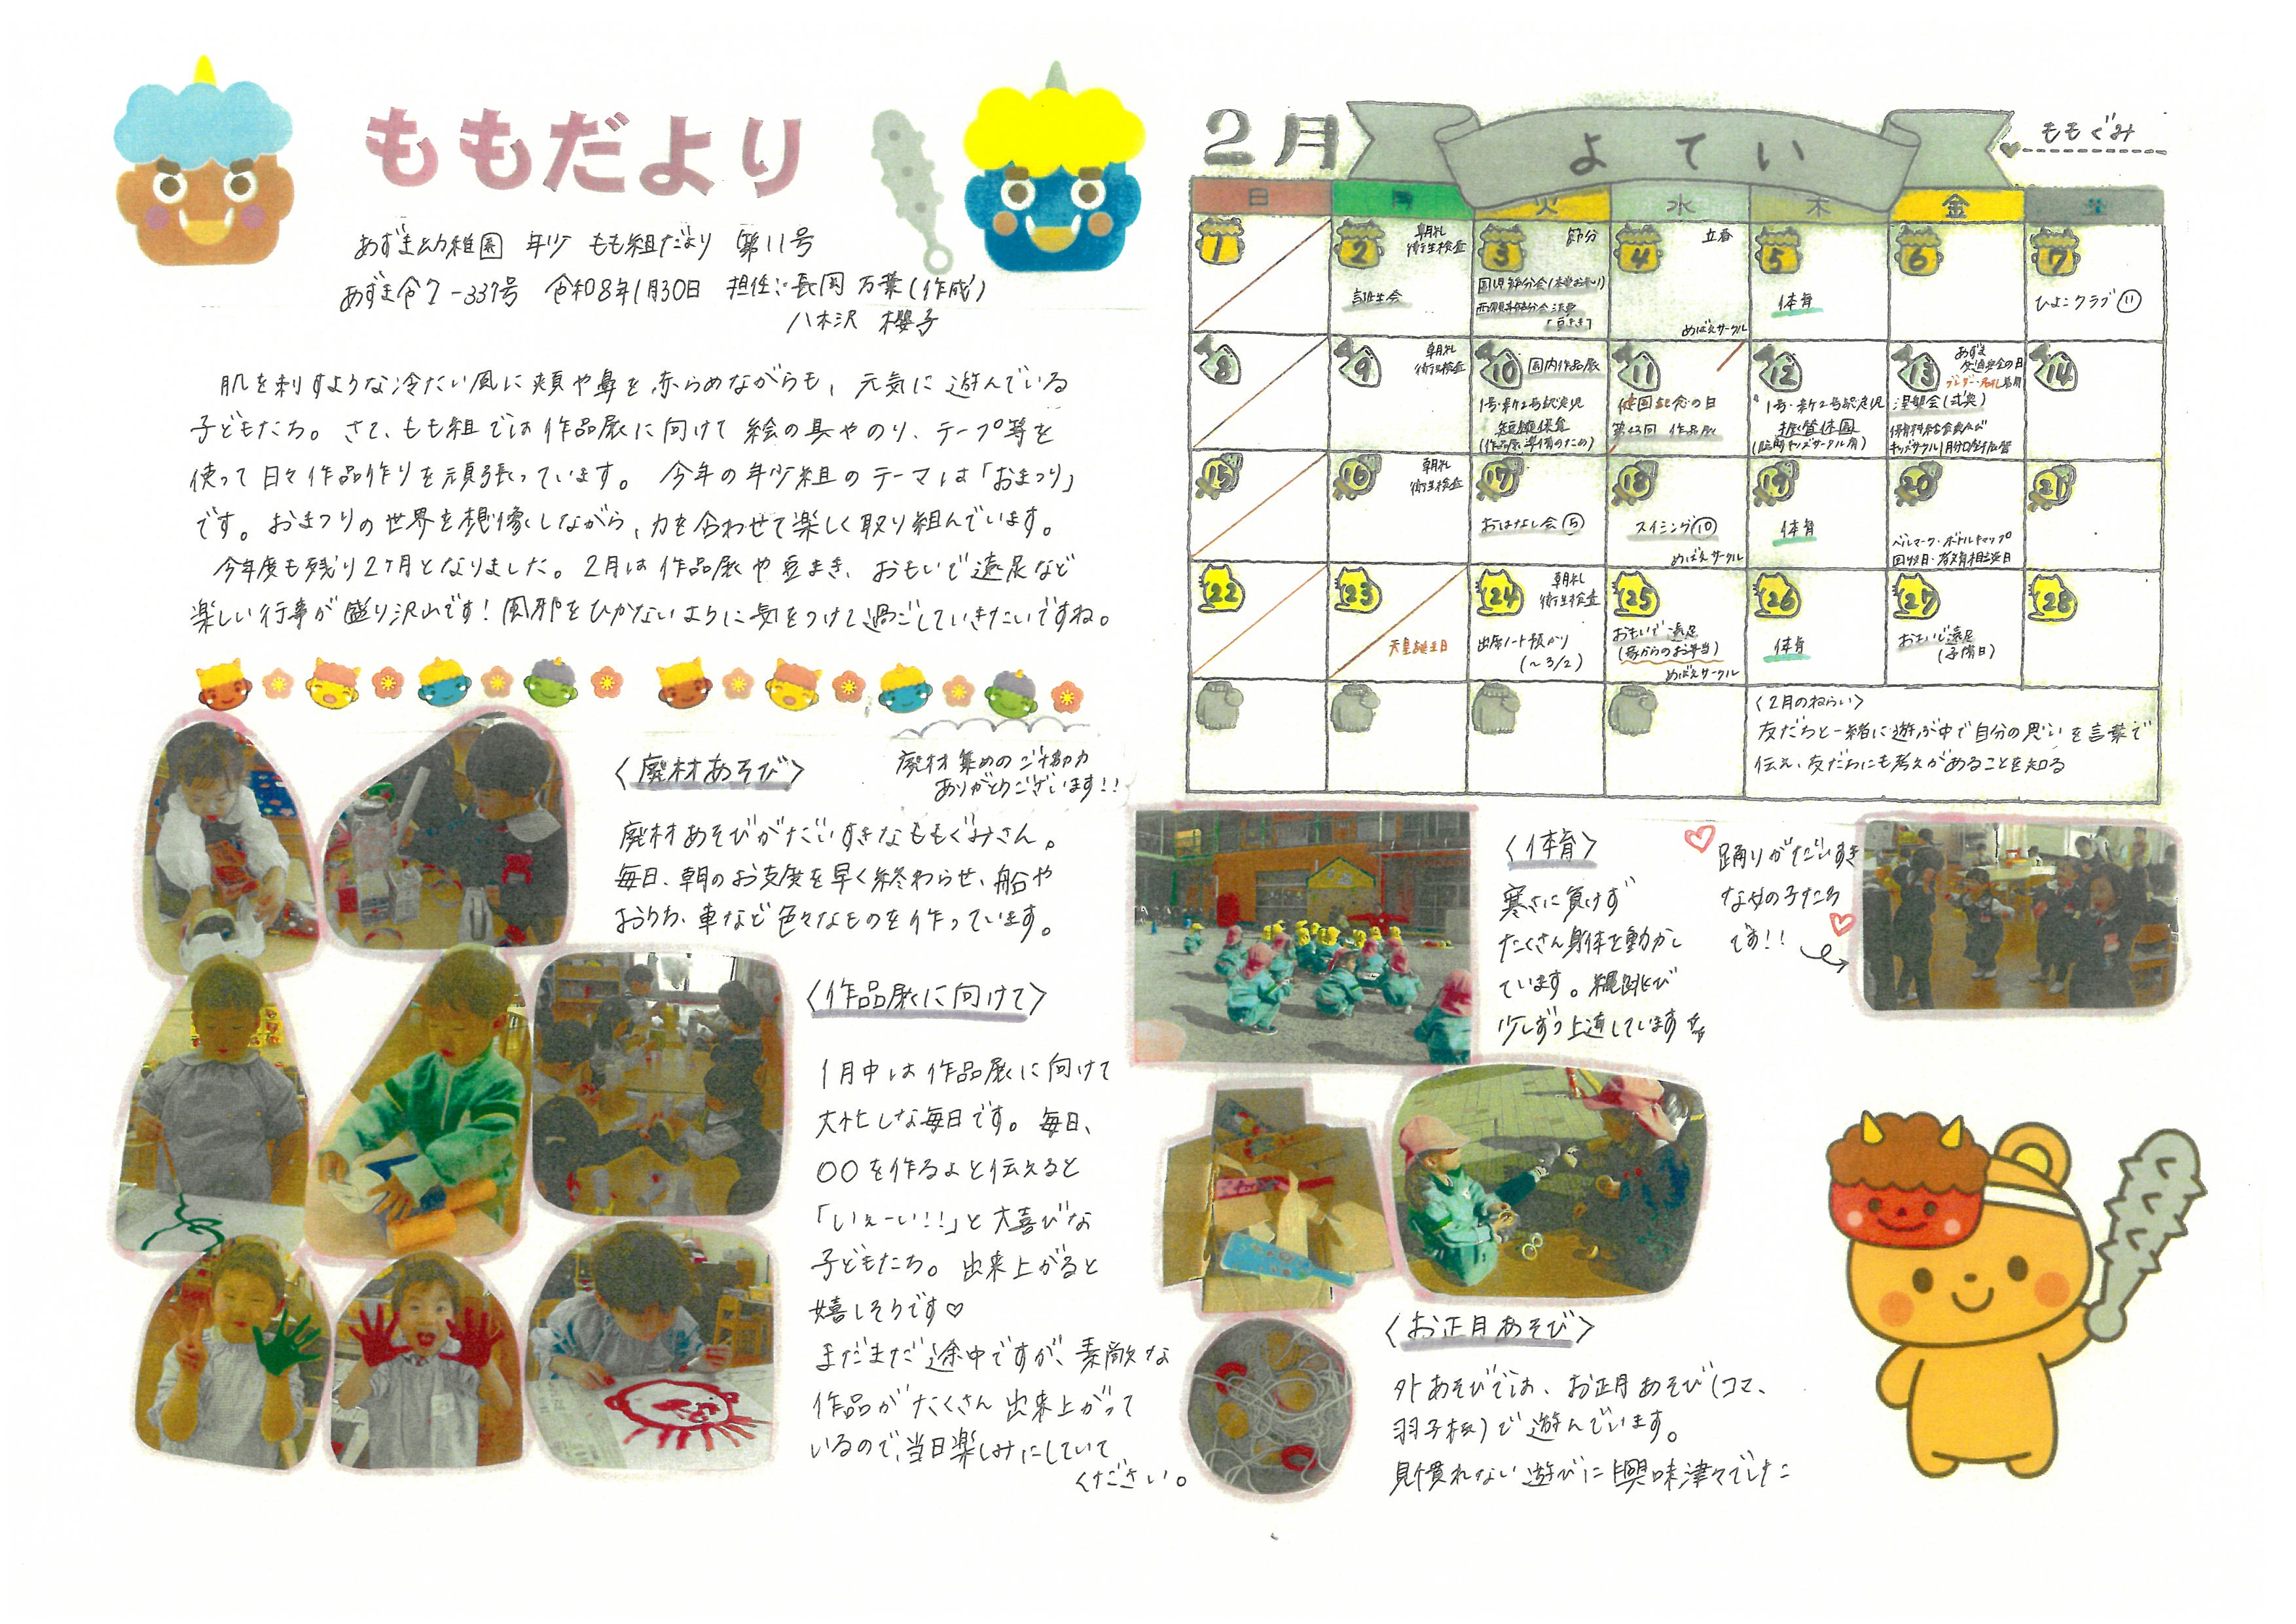 ももだより
あずま幼稚園 年少 もも組だより 第11号
あずま令7-337号 令和8年1月30日 担任:長岡 万葉(作成)
八木沢 櫻子
肌を刺すような冷たい風に頬や鼻を赤らめながらも、元気に遊んでいる
子どもたち。さて、もも組では作品展に向けて絵の具やのり、テープ等を
使って日々作品作りを頑張っています。今年の年少組のテーマは「おまつり」
です。おまつりの世界を想像しながら、力を合わせて楽しく取り組んでいます。
今年度も残り2ヶ月となりました。2月は作品展や豆まき、おもいで遠足など
楽しい行事が盛り沢山です!風邪をひかないように気をつけて過ごしていきたいですね。
〈廃材あそび〉
廃材集めのご協力
ありがとうございます!!
廃材あそびがだいすきなももぐみさん。
毎日、朝のお支度を早く終わらせ、船や
おうち、車など色々なものを作っています。
〈作品展に向けて〉
1月中は作品展に向けて
大忙しな毎日です。毎日、
〇〇を作るよと伝えると
「いぇーい!!」と大喜びな
子どもたち。出来上がると
嬉しそうです♡
まだまだ途中ですが、素敵な
作品がたくさん出来上がって
いるので、当日楽しみにしていて
ください。
2月 よてい
ももぐみ
日 月 火 水 木 金 土
1
2 朝礼
衛生検査
誕生会
3 節分
4 立春
めばえサークル
5
体育
6
7
ひよこクラブ⑪
8
9 朝礼
衛生検査
10 園内作品展
1号・新2号認定児
短縮保育
(作品展準備のため)
11
建国記念の日
第43回 作品展
12
1号・新2号認定児
振替休園
(臨時キッズサークル有)
13 あずま
交通安全の日
14
15
16 朝礼
衛生検査
17
おはなし会⑤
18
スイミング⑩
めばえサークル
19
体育
20
ベルマーク・ボトルキャップ
回収日・教育相談日
21
22
23
天皇誕生日
24 朝礼
衛生検査
出席ノート預かり
(~3/2)
25
おもいで遠足
(家からのお弁当)
めばえサークル
26
体育
27
おもいで遠足
(予備日)
28
〈2月のねらい〉
友だちと一緒に遊ぶ中で自分の思いを言葉で
伝え、友だちにも考えがあることを知る
〈体育〉
寒さに負けず
たくさん身体を動かし
ています。縄跳び
少しずつ上達しています
踊りがだいすき
な女の子たち
です!!
〈お正月あそび〉
外あそびでは、お正月あそび(コマ、
羽子板)で遊んでいます。
見慣れない遊びに興味津々でした